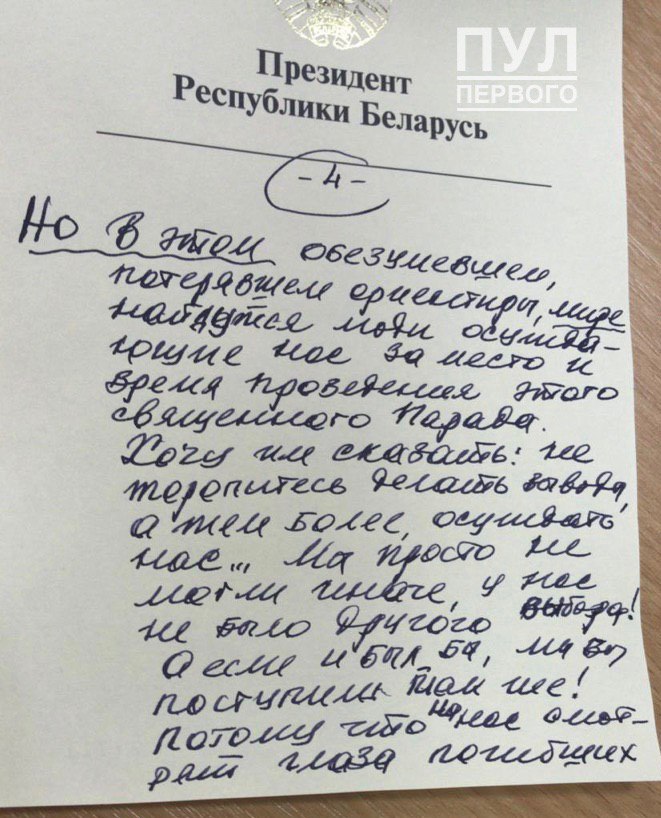 ПУЛ
ПЕРВОГО
Президент
Республики Беларусь
- 4 -
Но в этом обезумевшем,
потерявшем ориентиры, мире
найдутся люди осужда-
ющие нас за место и
время проведения этого
священного Парада.
Хочу им сказать: не
торопитесь делать вывода,
а тем более, осуждать
нас... Мы просто не
могли иначе, у нас
не было другого выбора!
А если и был бы, мы бы
поступили так же!
Потому что на нас смот-
рят глаза погибших